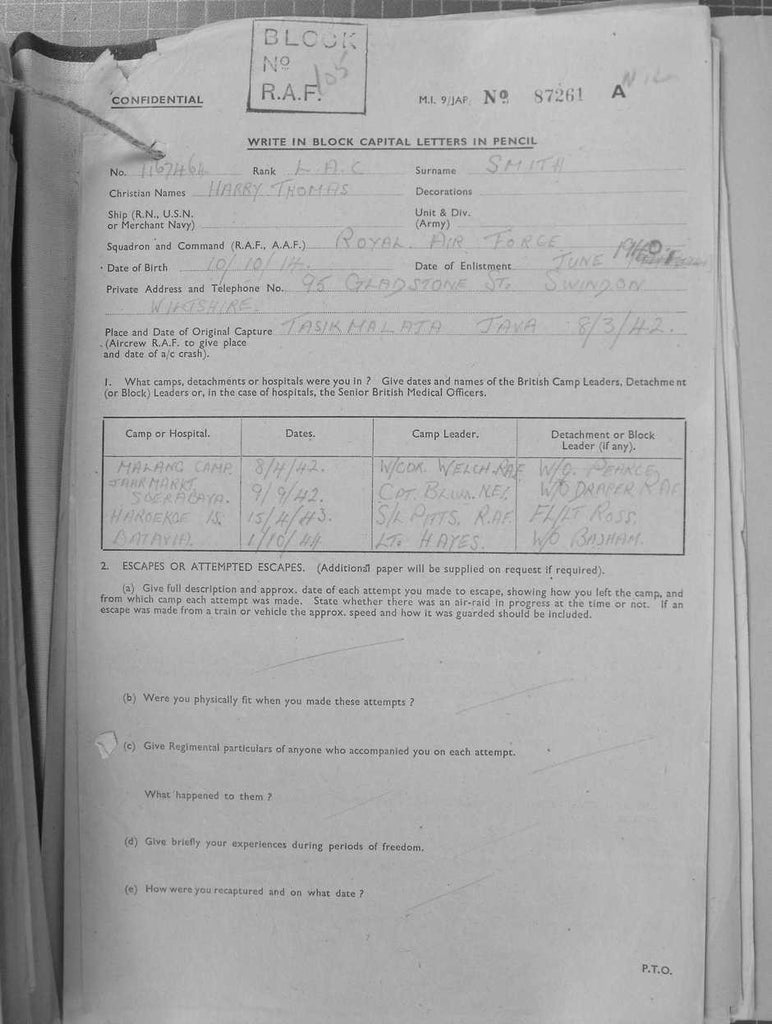 BLOCK
Nº
R.A.F. 105
CONFIDENTIAL
M.I. 9/JAP. Nº 87261 A
WRITE IN BLOCK CAPITAL LETTERS IN PENCIL
No. 1167464 Rank L.A.C Surname SMITH
Christian Names HARRY THOMAS Decorations
Ship (R.N., U.S.N. or Merchant Navy) Unit & Div. (Army)
Squadron and Command (R.A.F., A.A.F.) ROYAL AIR FORCE
Date of Birth 10/10/14. Date of Enlistment JUNE 1940
Private Address and Telephone No. 95 GLADSTONE ST. SWINDON
WILTSHIRE.
Place and Date of Original Capture TASIKMALAJA JAVA 8/3/42.
(Aircrew R.A.F. to give place
and date of a/c crash).
1. What camps, detachments or hospitals were you in ? Give dates and names of the British Camp Leaders, Detachment
(or Block) Leaders or, in the case of hospitals, the Senior British Medical Officers.
Camp or Hospital. Dates. Camp Leader. Detachment or Block Leader (if any).
MALANG CAMP. 8/4/42. W/CDR. WELCH. RAF W/O. PEARCE
JAARMARKT. SOERABAYA. 9/9/42. CPT. BLOM. NEI. W/O DRAPER RAF
HAROEKOE IS. 15/4/43. S/L PITTS. R.AF. FL/LT ROSS.
BATAVIA. 1/10/44 LT. HAYES. W/O BASHAM.
2. ESCAPES OR ATTEMPTED ESCAPES. (Additional paper will be supplied on request if required).
(a) Give full description and approx. date of each attempt you made to escape, showing how you left the camp, and
from which camp each attempt was made. State whether there was an air-raid in progress at the time or not. If an
escape was made from a train or vehicle the approx. speed and how it was guarded should be included.
(b) Were you physically fit when you made these attempts ?
(c) Give Regimental particulars of anyone who accompanied you on each attempt.
What happened to them ?
(d) Give briefly your experiences during periods of freedom.
(e) How were you recaptured and on what date ?
P.T.O.